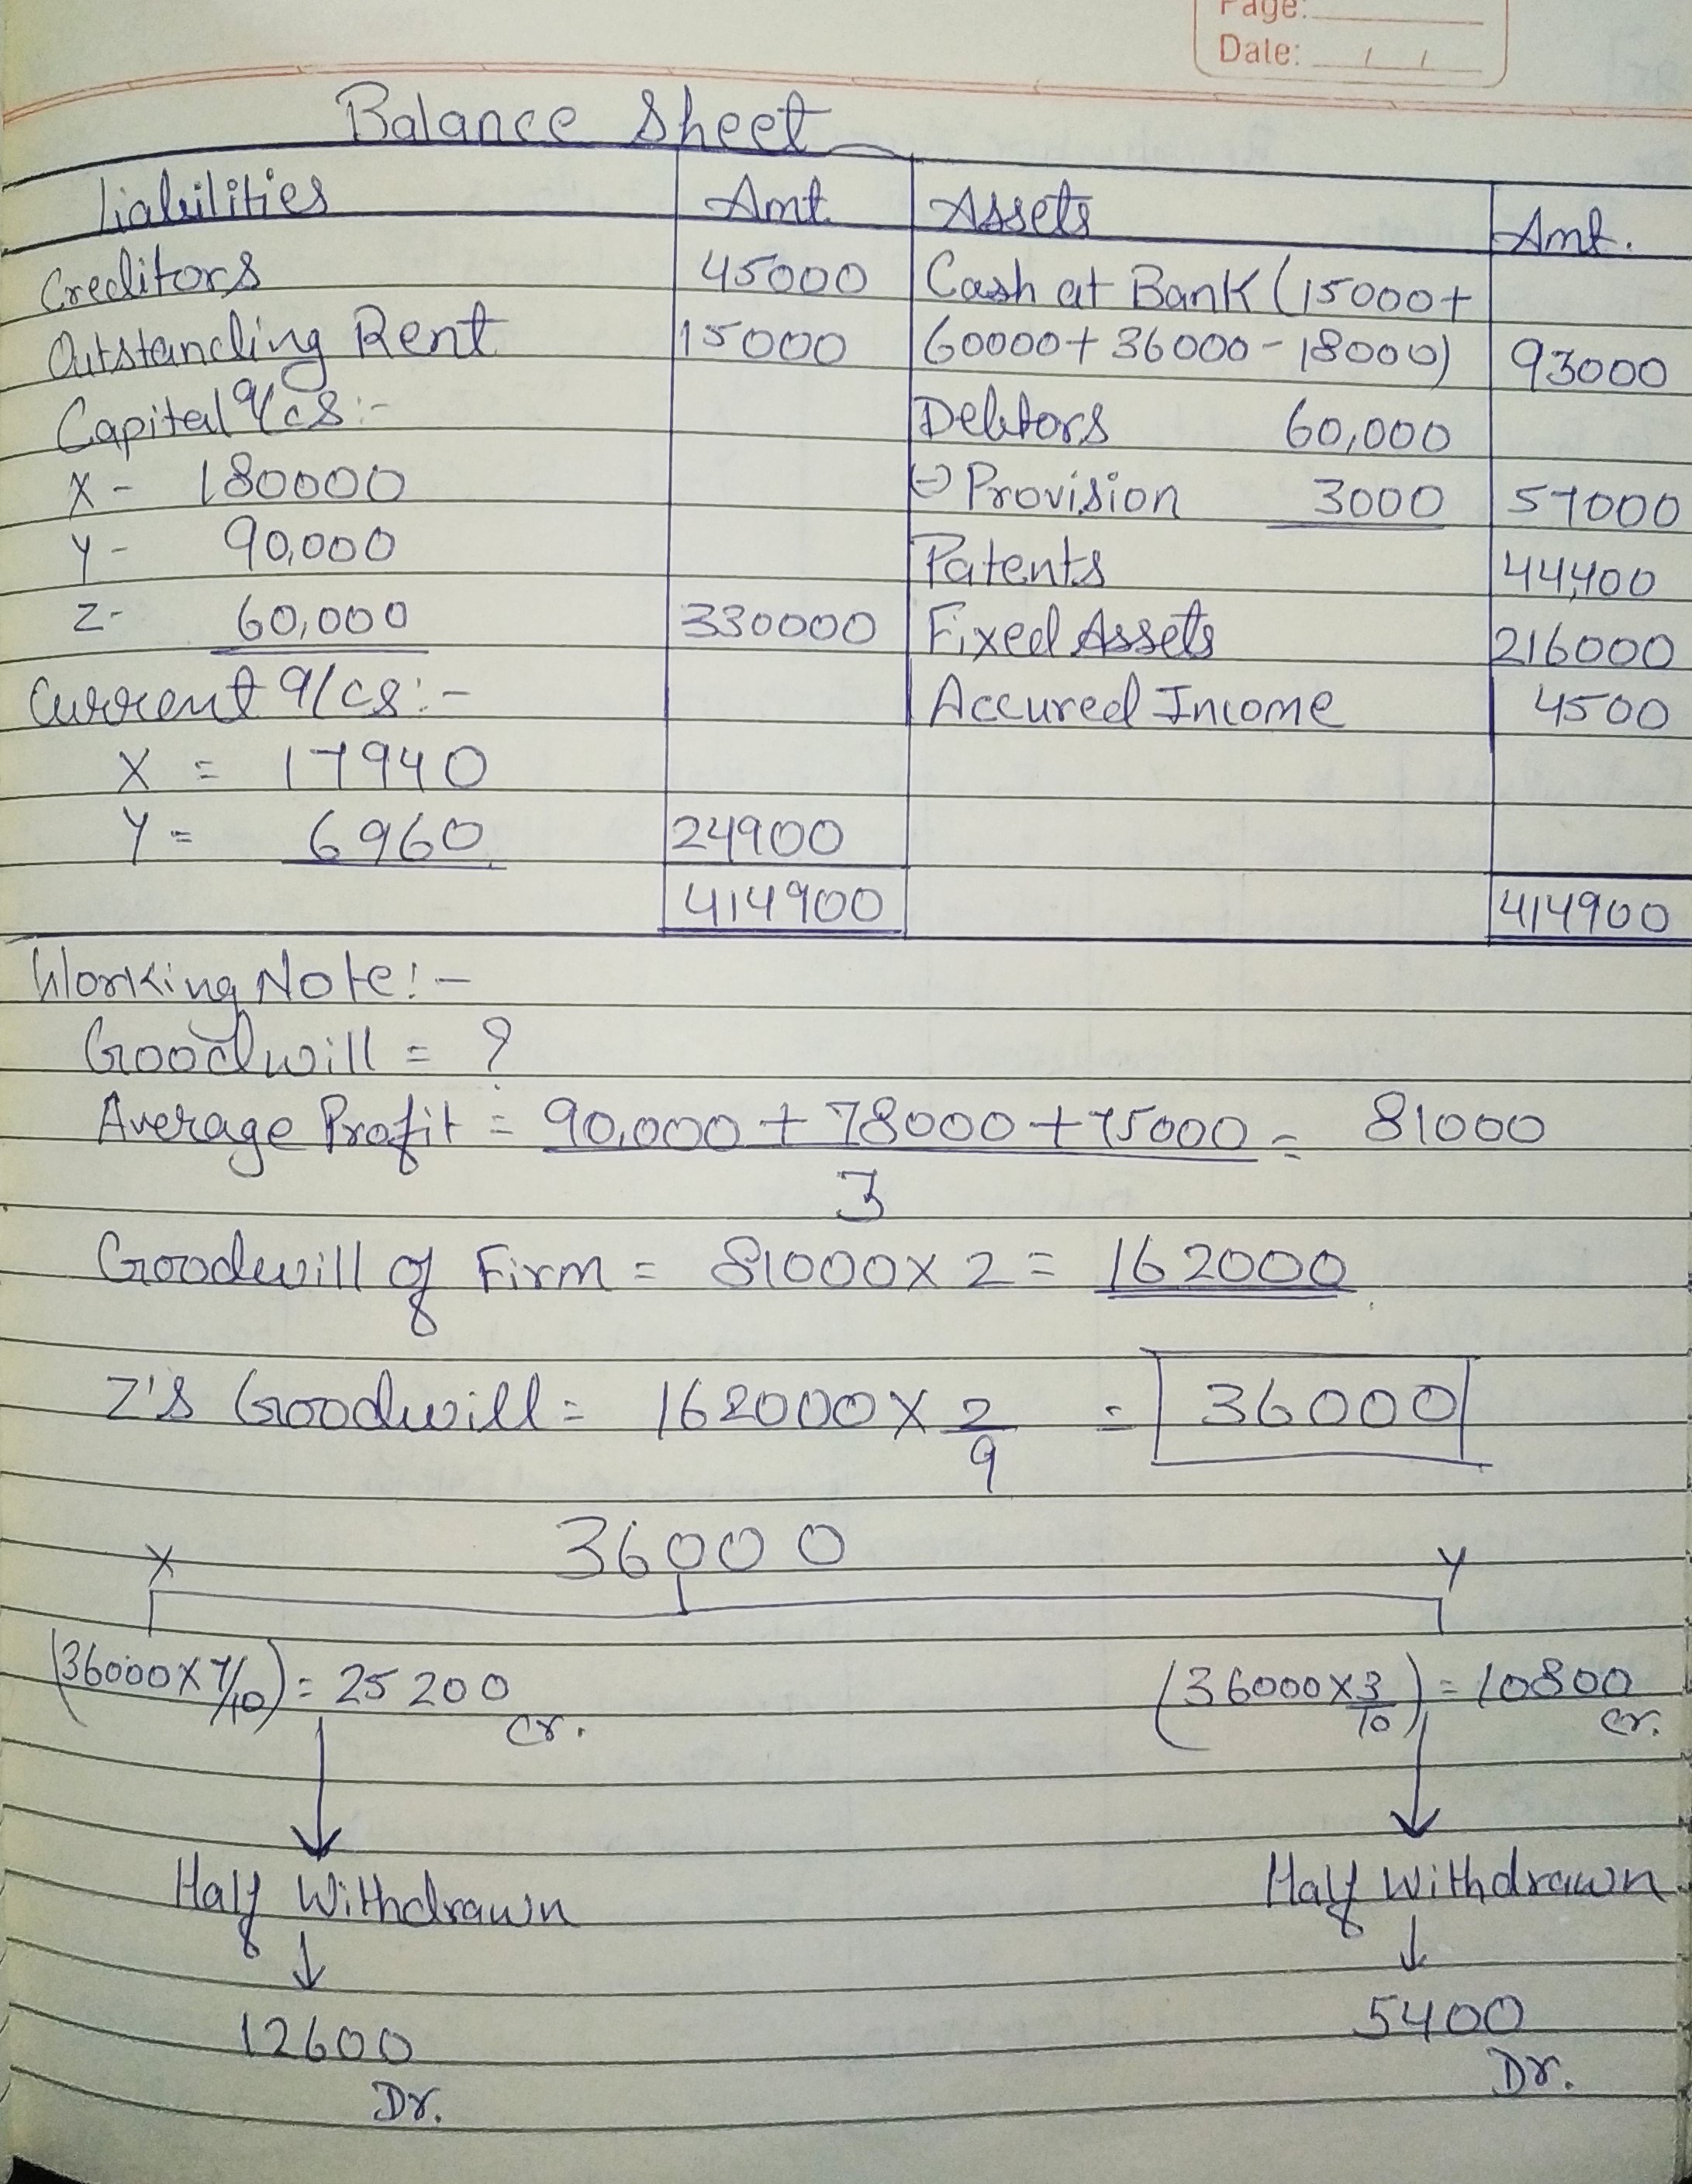 Page:
Date: / /
Balance Sheet
Liabilities Amt. Assets Amt.
Creditors 45000 Cash at Bank (15000+
Outstanding Rent 15000 60000+36000-18000) 93000
Capital a/cs:- Debtors 60,000
X- 180000 (-) Provision 3000 57000
Y- 90,000 Patents 44,400
Z- 60,000 330000 Fixed Assets 216000
Current a/cs:- Accured Income 4500
X = 17940
Y = 6960 24900
414900 414900
Working Note:-
Goodwill = ?
Average Profit = 90,000 + 78000 + 75000 = 81000
3
Goodwill of Firm = 81000 x 2 = 162000
Z's Goodwill = 162000 x 2/9 = 36000
X 36000 Y
(36000 x 7/10) = 25200 (36000 x 3/10) = 10800
Cr. Cr.
Half Withdrawn Half Withdrawn
12600 5400
Dr. Dr.